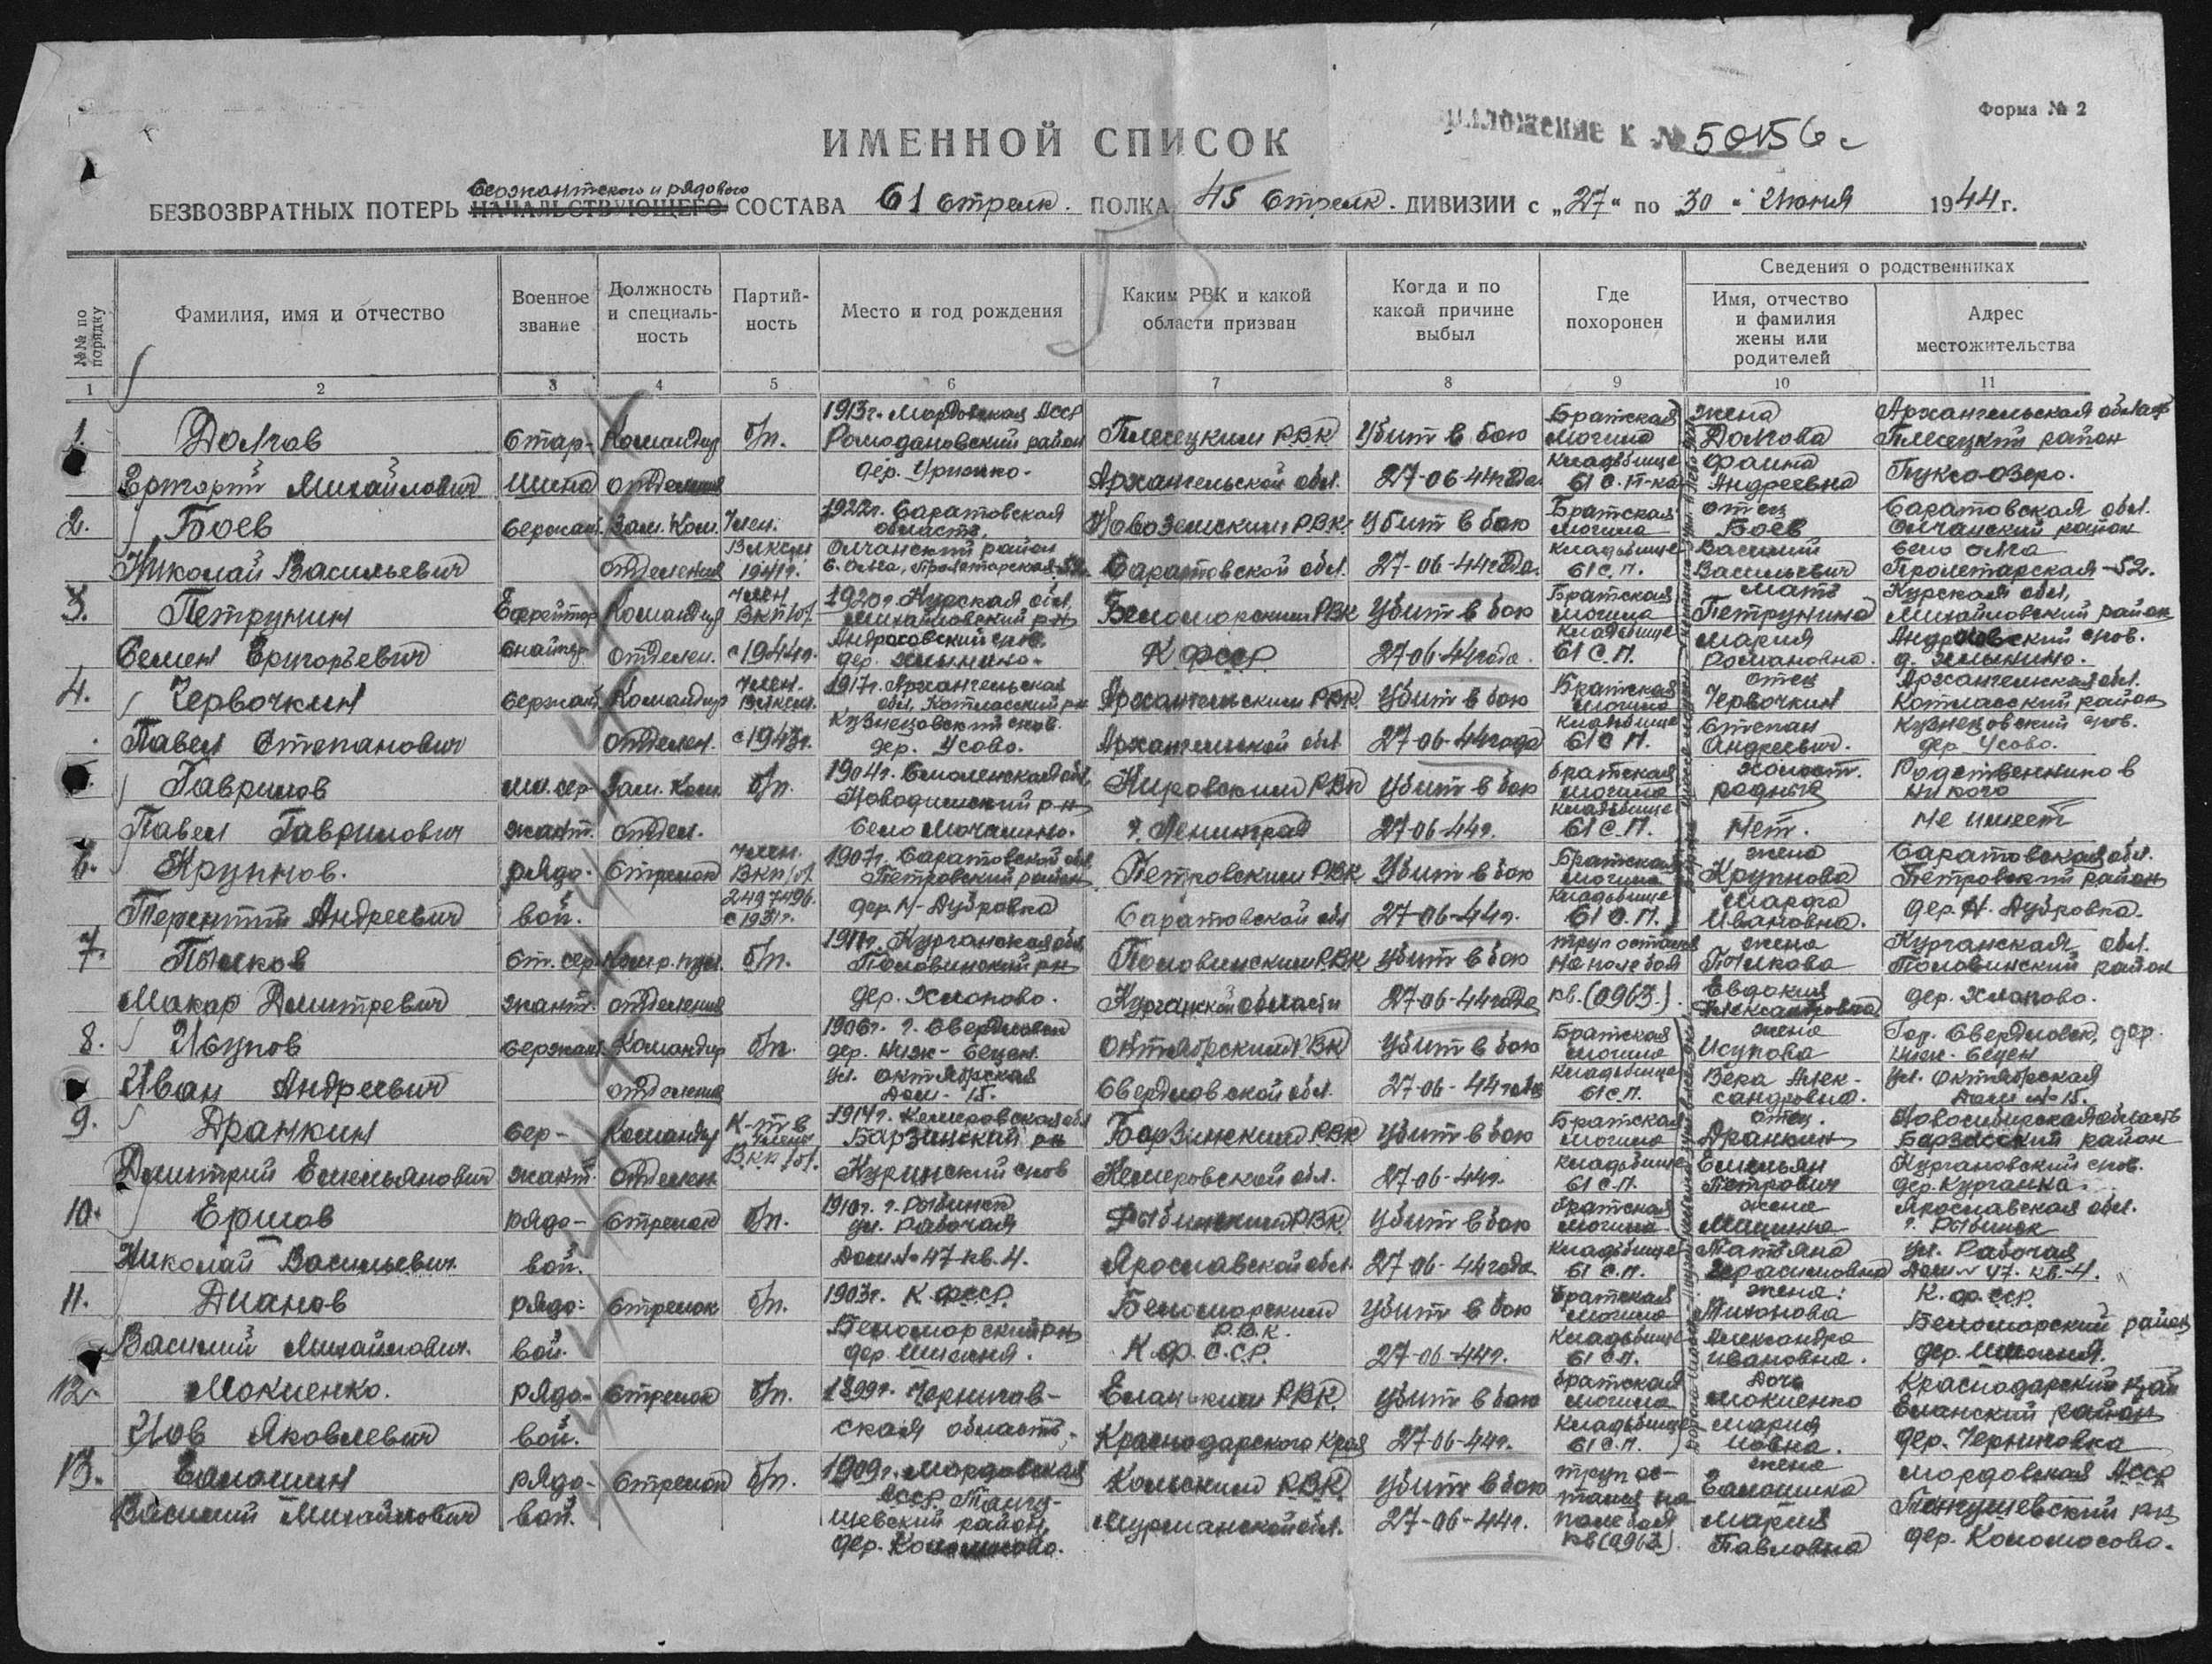 Форма № 2
ИМЕННОЙ СПИСОК
приложение к № 50156с
сержантского и рядового
БЕЗВОЗВРАТНЫХ ПОТЕРЬ НАЧАЛЬСТВУЮЩЕГО СОСТАВА 61 стрелк. ПОЛКА 45 стрелк. ДИВИЗИИ с „27“ по „30“ Июня 1944 г.
№№ по порядку
Фамилия, имя и отчество
Военное звание
Должность и специальность
Партийность
Место и год рождения
Каким РВК и какой области призван
Когда и по какой причине выбыл
Где похоронен
Сведения о родственниках
Имя, отчество и фамилия жены или родителей
Адрес местожительства
1 2 3 4 5 6 7 8 9 10 11
1. Долгов
Григорий Михайлович
Старшина
Командир отделения
б/п.
1913г. Мордовская АССР
Ромодановский район
дер.
Плесецким РВК
Архангельской обл.
Убит в бою
27-06-44 года
Братская могила
кладбище
61 с.п-ка
жена
Долгова
Фаина
Андреевна
Архангельская область
Плесецкий район
Пуксо-озеро.
2. Боев
Николай Васильевич
Сержант
Зам. Ком.
отделения
Член.
ВЛКСМ
1941г.
1922г. Саратовская
область,
район
Пролетарская-52.
Новоузенским РВК
Саратовской обл.
Убит в бою
27-06-44 года.
Братская
могила
кладбище
61 с.п.
отец
Боев
Василий
Васильевич
Саратовская обл.
район
село
Пролетарская-52.
3. Петрунин
Семен Григорьевич
Ефрейтор
Снайпер
Командир
отделен.
Член
ВКП/б/.
с 1944г.
1920г. Курская обл.
Михайловский р-н
Андросовский с/сов.
дер.
Беломорским РВК
К ФССР
Убит в бою
27-06-44 года.
Братская
могила
кладбище
61 с.п.
Мать
Петрунина
Мария
Романовна.
Курская обл,
Михайловский район
Андросовский с/сов.
4. Червочкин
Павел Степанович
Сержант
Командир
отделен.
Член.
ВЛКСМ.
с 1943г.
1917г. Архангельская
обл, Котласский р-н
Кузнецовский с/сов.
дер. Усово.
Архангельским РВК
Архангельской обл
Убит в бою
27-06-44 года
Братская
могила
кладбище
61 с п.
отец
Червочкин
Степан
Андреевич.
Архангельская обл.
Котласский район
Кузнецовский с/сов.
дер. Усово.
Гаврилов
Павел Гаврилович
мл. сержант.
Зам. Ком.
отдел.
б/п.
1904г. Смоленская обл,
Новодугинский р-н
село
Кировским РВК
г. Ленинград
Убит в бою
27-06-44г.
Братская
могила
кладбище
61 с.п.
холост.
родных
Нет.
Родственников
никого
не имеет
6. Крупнов.
Терентий Андреевич
рядовой.
Стрелок
Член.
ВКП/б/.
2497496.
с 1931г.
1907г. Саратовской обл.
Петровский район
дер. Н-Дубровка
Петровским РВК
Саратовской обл
Убит в бою
27-06-44г.
Братская
могила
кладбище
61 с.п.
жена
Крупнова
Ивановна.
Саратовская обл.
Петровский район
дер. Н. Дубровка.
7.
Макар Дмитревич
Ст. сержант.
отделения
б/п.
1911г. Курганская обл.
Половинский р-н
дер. Хлопово.
Половинским РВК
Курганской области
Убит в бою
27-06-44 года
труп остался
на поле боя
кв. (0963.).
жена
Евдокия
Александровна
Курганская обл.
Половинский район
дер. Хлопово.
8. Исупов
Иван Андреевич
Сержант
Командир
отделения
б/п.
1906г. г. Свердловск
ул. Октябрская
дом - 15.
Октябрским РВК
Свердловской обл.
Убит в бою
27-06-44 года
Братская
могила
кладбище
61 с.п.
жена
Исупова
Вера Алек-
сандровна.
Гор. Свердловск, дер.
ул. Октябрская
дом № 15.
9. Дранкин
Дмитрий Емельянович
Сержант.
Командир
отделен
К-т в
члены
ВКП/б/.
1914г. Кемеровская обл
р-н
с/сов
РВК
Кемеровской обл.
Убит в бою
27-06-44г.
Братская
могила
кладбище
61 с.п.
отец.
Дранкин
Емельян
Петрович
Новосибирская область
Барзасский район
дер. Курганка.
10. Ершов
Николай Васильевич.
рядовой.
Стрелок
б/п.
1910г. г. Рыбинск
ул. Рабочая
Дом № 47 кв. 4.
Рыбинским РВК
Ярославской обл.
Убит в бою
27-06-44 года
Братская
могила
кладбище
61 с.п.
жена
Татьяна
Герасимовна
Ярославская обл.
г. Рыбинск
ул. Рабочая
Дом № 47. кв. 4.
11. Дианов
Василий Михайлович.
рядовой.
Стрелок
б/п.
1903г. К ФССР.
Беломорский р-н
дер.
Беломорским
Р.В.К.
К.Ф.С.С.Р.
Убит в бою
27-06-44г.
Братская
могила
кладбище
61 с.п.
жена:
Александра
Ивановна.
К.Ф.ССР
Беломорский район
дер.
12. Мокиенко.
Иов Яковлевич
рядовой.
Стрелок
б/п.
1899г. Чернигов-
ская область.
РВК
Краснодарского Края
Убит в бою
27-06-44г.
Братская
могила
кладбище
61 с.п.
Дочь
Мокиенко
Мария
Иовна.
Краснодарский край
район
дер. Черниговка
13.
Василий Михайлович
рядовой.
Стрелок
б/п.
1909г. Мордовская
АССР.
район,
дер. Коломасово.
Кольским РВК
Мурманской обл.
Убит в бою
27-06-44г.
труп ос-
тался на
поле боя
кв (0963)
жена
Мария
Павловна
Мордовская АССР
р-н
дер. Коломосово.